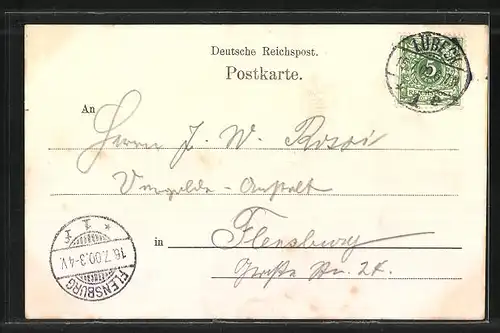 Deutsche Reichspost.
Postkarte.
LÜBECK
5
An
Herrn J. W. Rossi
Vergolde-Anstalt
in Flensburg
Große Str. 24.
* 1 f
16.7.00.3-4V.
FLENSBURG